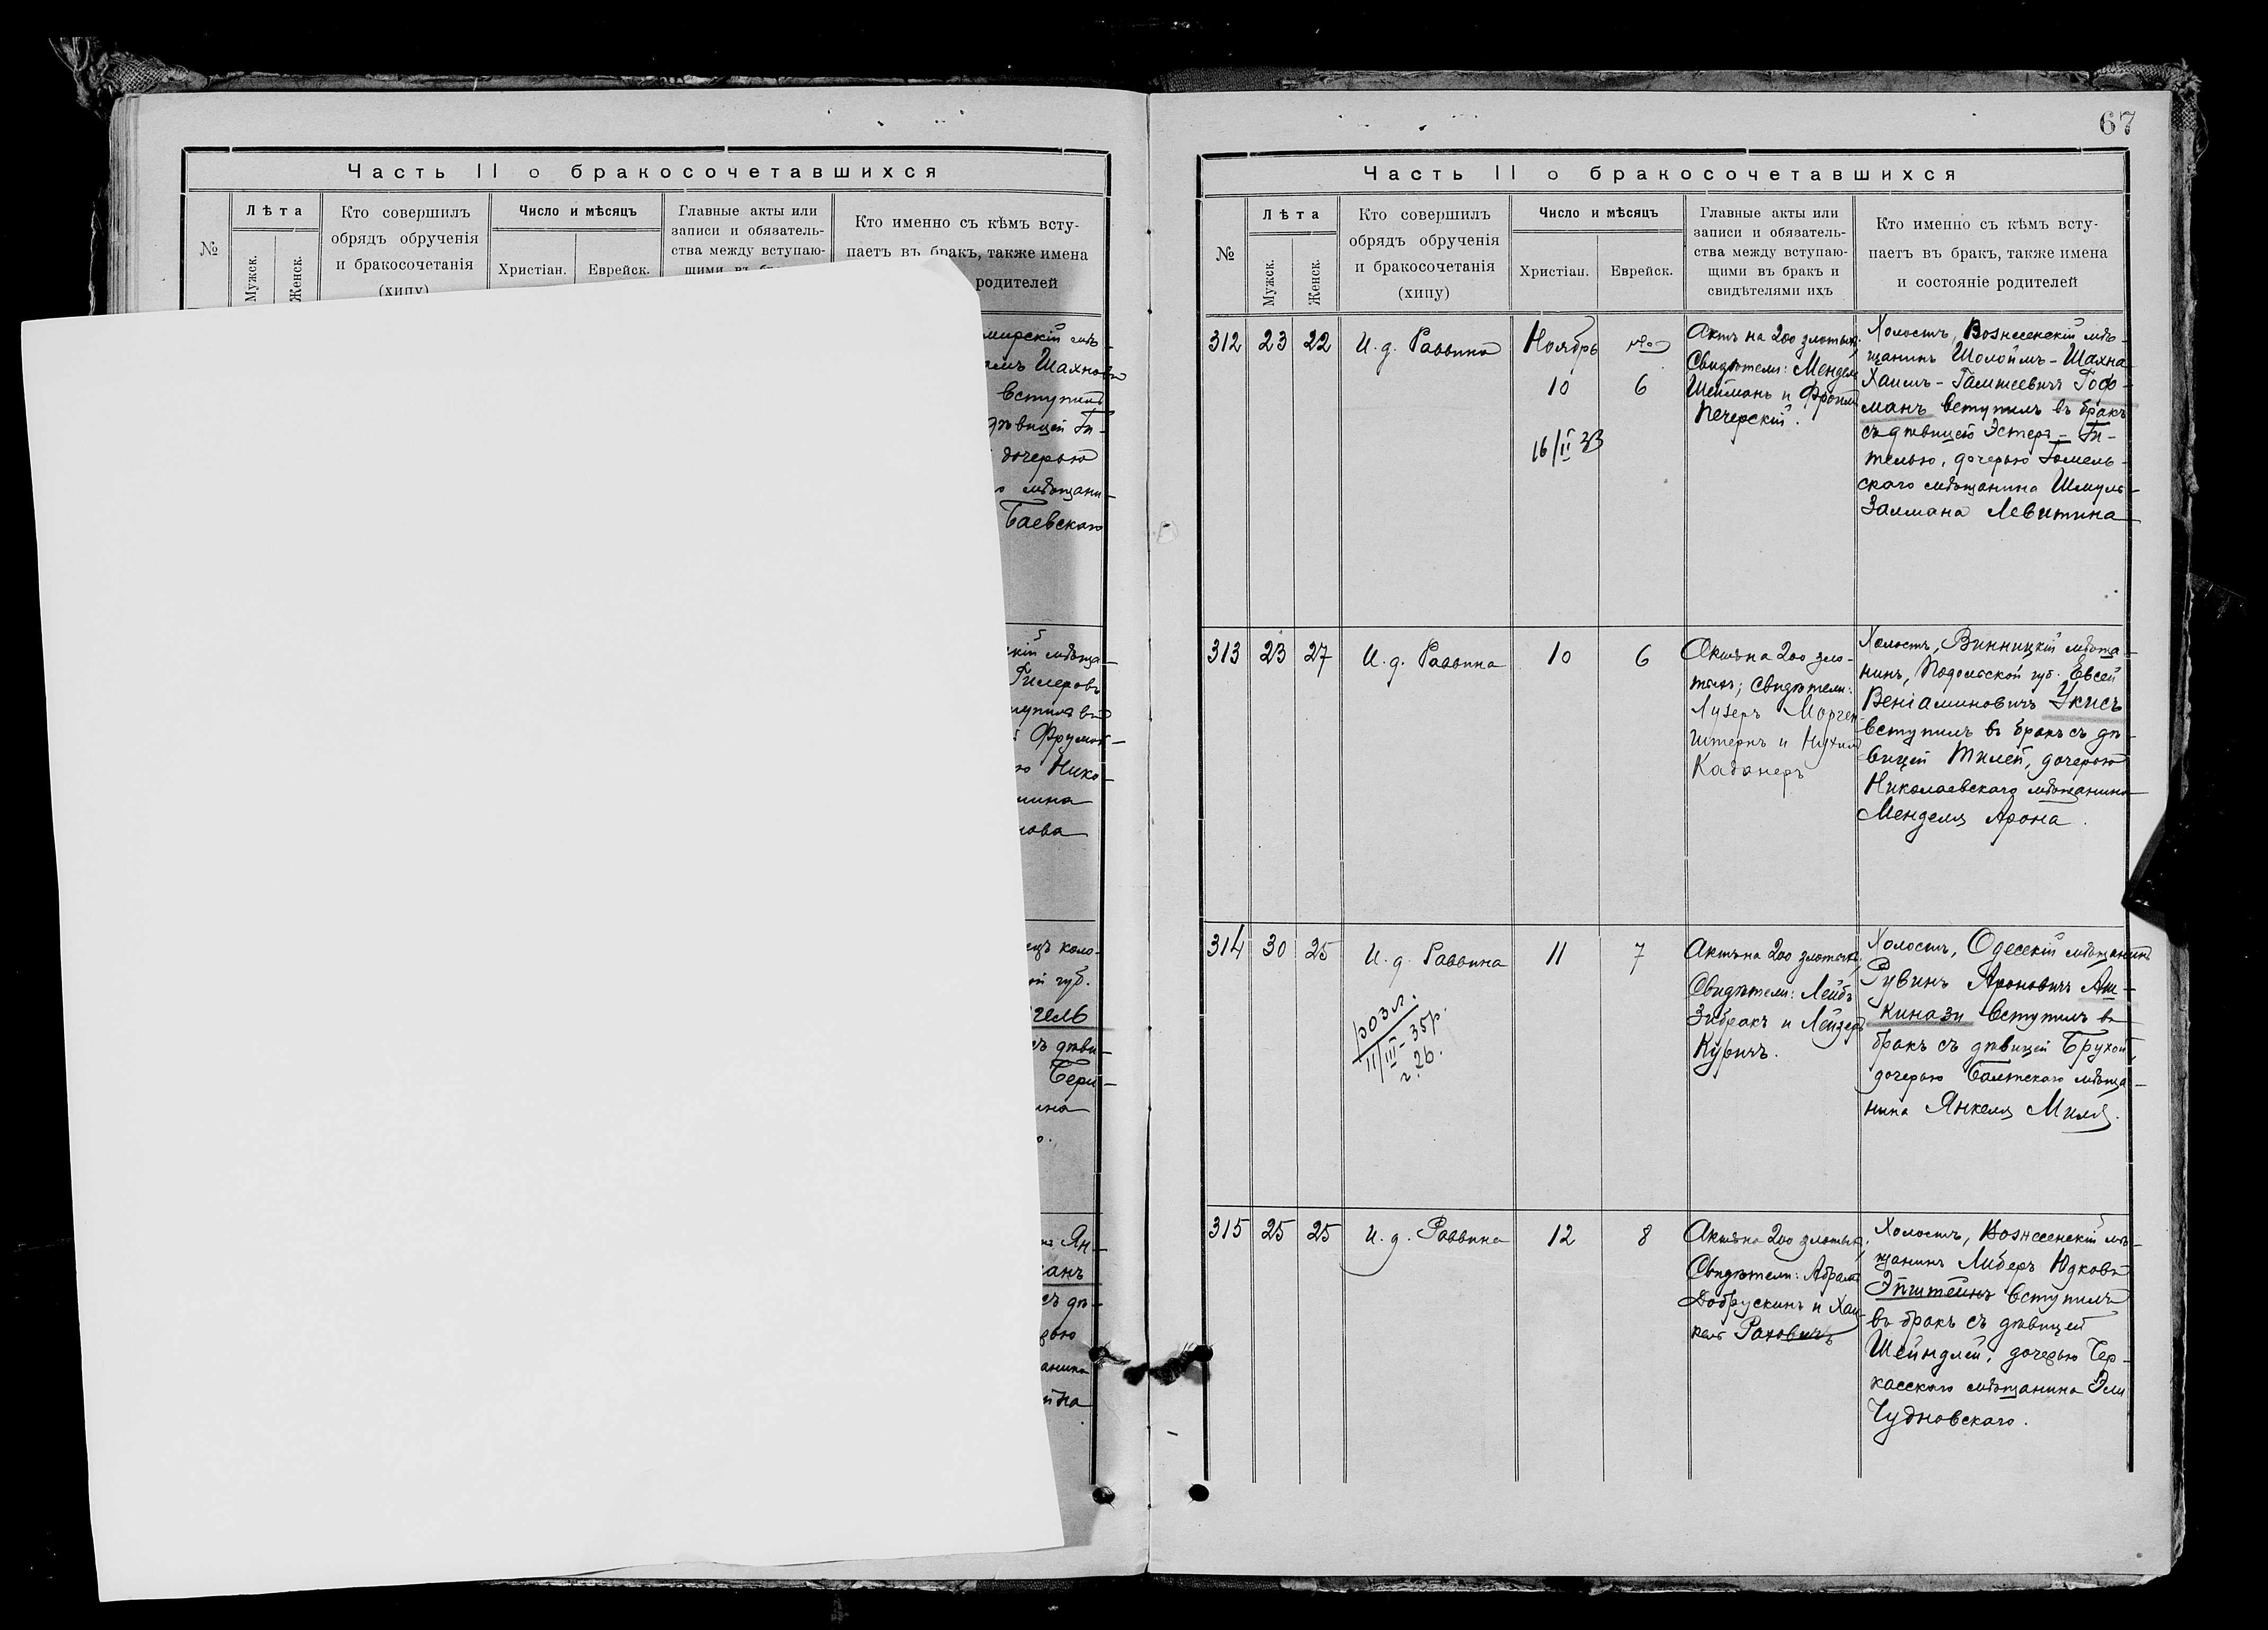 Часть II о бракосочетавшихся
№
Лѣта
Мужск.
Женск.
Кто совершилъ
обрядъ обрученія
и бракосочетанія
(хипу)
Число и мѣсяцъ
Христіан.
Еврейск.
Главные акты или
записи и обязатель-
ства между вступаю-
щими въ
Кто именно съ кѣмъ всту-
паетъ въ бракъ, также имена
родителей
мирскій мѣ-
Шахновъ
вступилъ
Ги-
дочерью
мѣщани-
Баевскаго
мѣща-
Гилеровъ
Нико-
коло-
губ.
дѣви-
Бери-
Ян-
67
Часть II о бракосочетавшихся
№
Лѣта
Мужск.
Женск.
Кто совершилъ
обрядъ обрученія
и бракосочетанія
(хипу)
Число и мѣсяцъ
Христіан.
Еврейск.
Главные акты или
записи и обязатель-
ства между вступаю-
щими въ бракъ и
свидѣтелями ихъ
Кто именно съ кѣмъ всту-
паетъ въ бракъ, также имена
и состояніе родителей
312 23 22 И. д. Раввина
Ноябрь
10 6
16/II 33
Актъ на 200 злотыхъ;
Свидѣтели: Мендель
Шейманъ и Фроимъ
Печерскій.
Холостъ, Вознесенскій мѣ-
щанинъ Шолоймъ-Шахна
Хаимъ- Гоф-
манъ вступилъ въ бракъ
съ дѣвицею Эстеръ-Ги-
телью, дочерью Гомель-
скаго мѣщанина Шмуль-
Залмана Левитина
313 23 27 И. д. Раввина 10 6
Актъ на 200 зло-
тыхъ; Свидѣтели:
Лузеръ Морген-
штернъ и Нухимъ
Кабанеръ
Холостъ, Винницкій мѣща-
нинъ, Подольской губ. Евсей
Веніаминовичъ Укисъ
вступилъ въ бракъ съ дѣ-
вицей Тилей, дочерью
Николаевскаго мѣщанина
Менделя Арона.
314 30 25 И. д. Раввина 11 7
розл.
11/III-35р.
г. 26.
Актъ на 200 злотыхъ;
Свидѣтели: Лейбъ
Зибракъ и Лейзеръ
Куричъ.
Холостъ, Одесскій мѣщанинъ
Рувинъ Ароновичъ Аш-
кинази вступилъ въ
бракъ съ дѣвицей Брухой,
дочерью Балтскаго мѣща-
нина Янкеля Миля.
315 25 25 И. д. Раввина 12 8
Актъ на 200 злотыхъ;
Свидѣтели: Абрамъ
Добрускинъ и Хаи-
кель Раховичъ
Холостъ, Вознесенскій мѣ-
щанинъ Либеръ Юдковъ
Эпштейнъ вступилъ
въ бракъ съ дѣвицей
Шейндлей, дочерью Чер-
касскаго мѣщанина Эли
Чудновскаго.